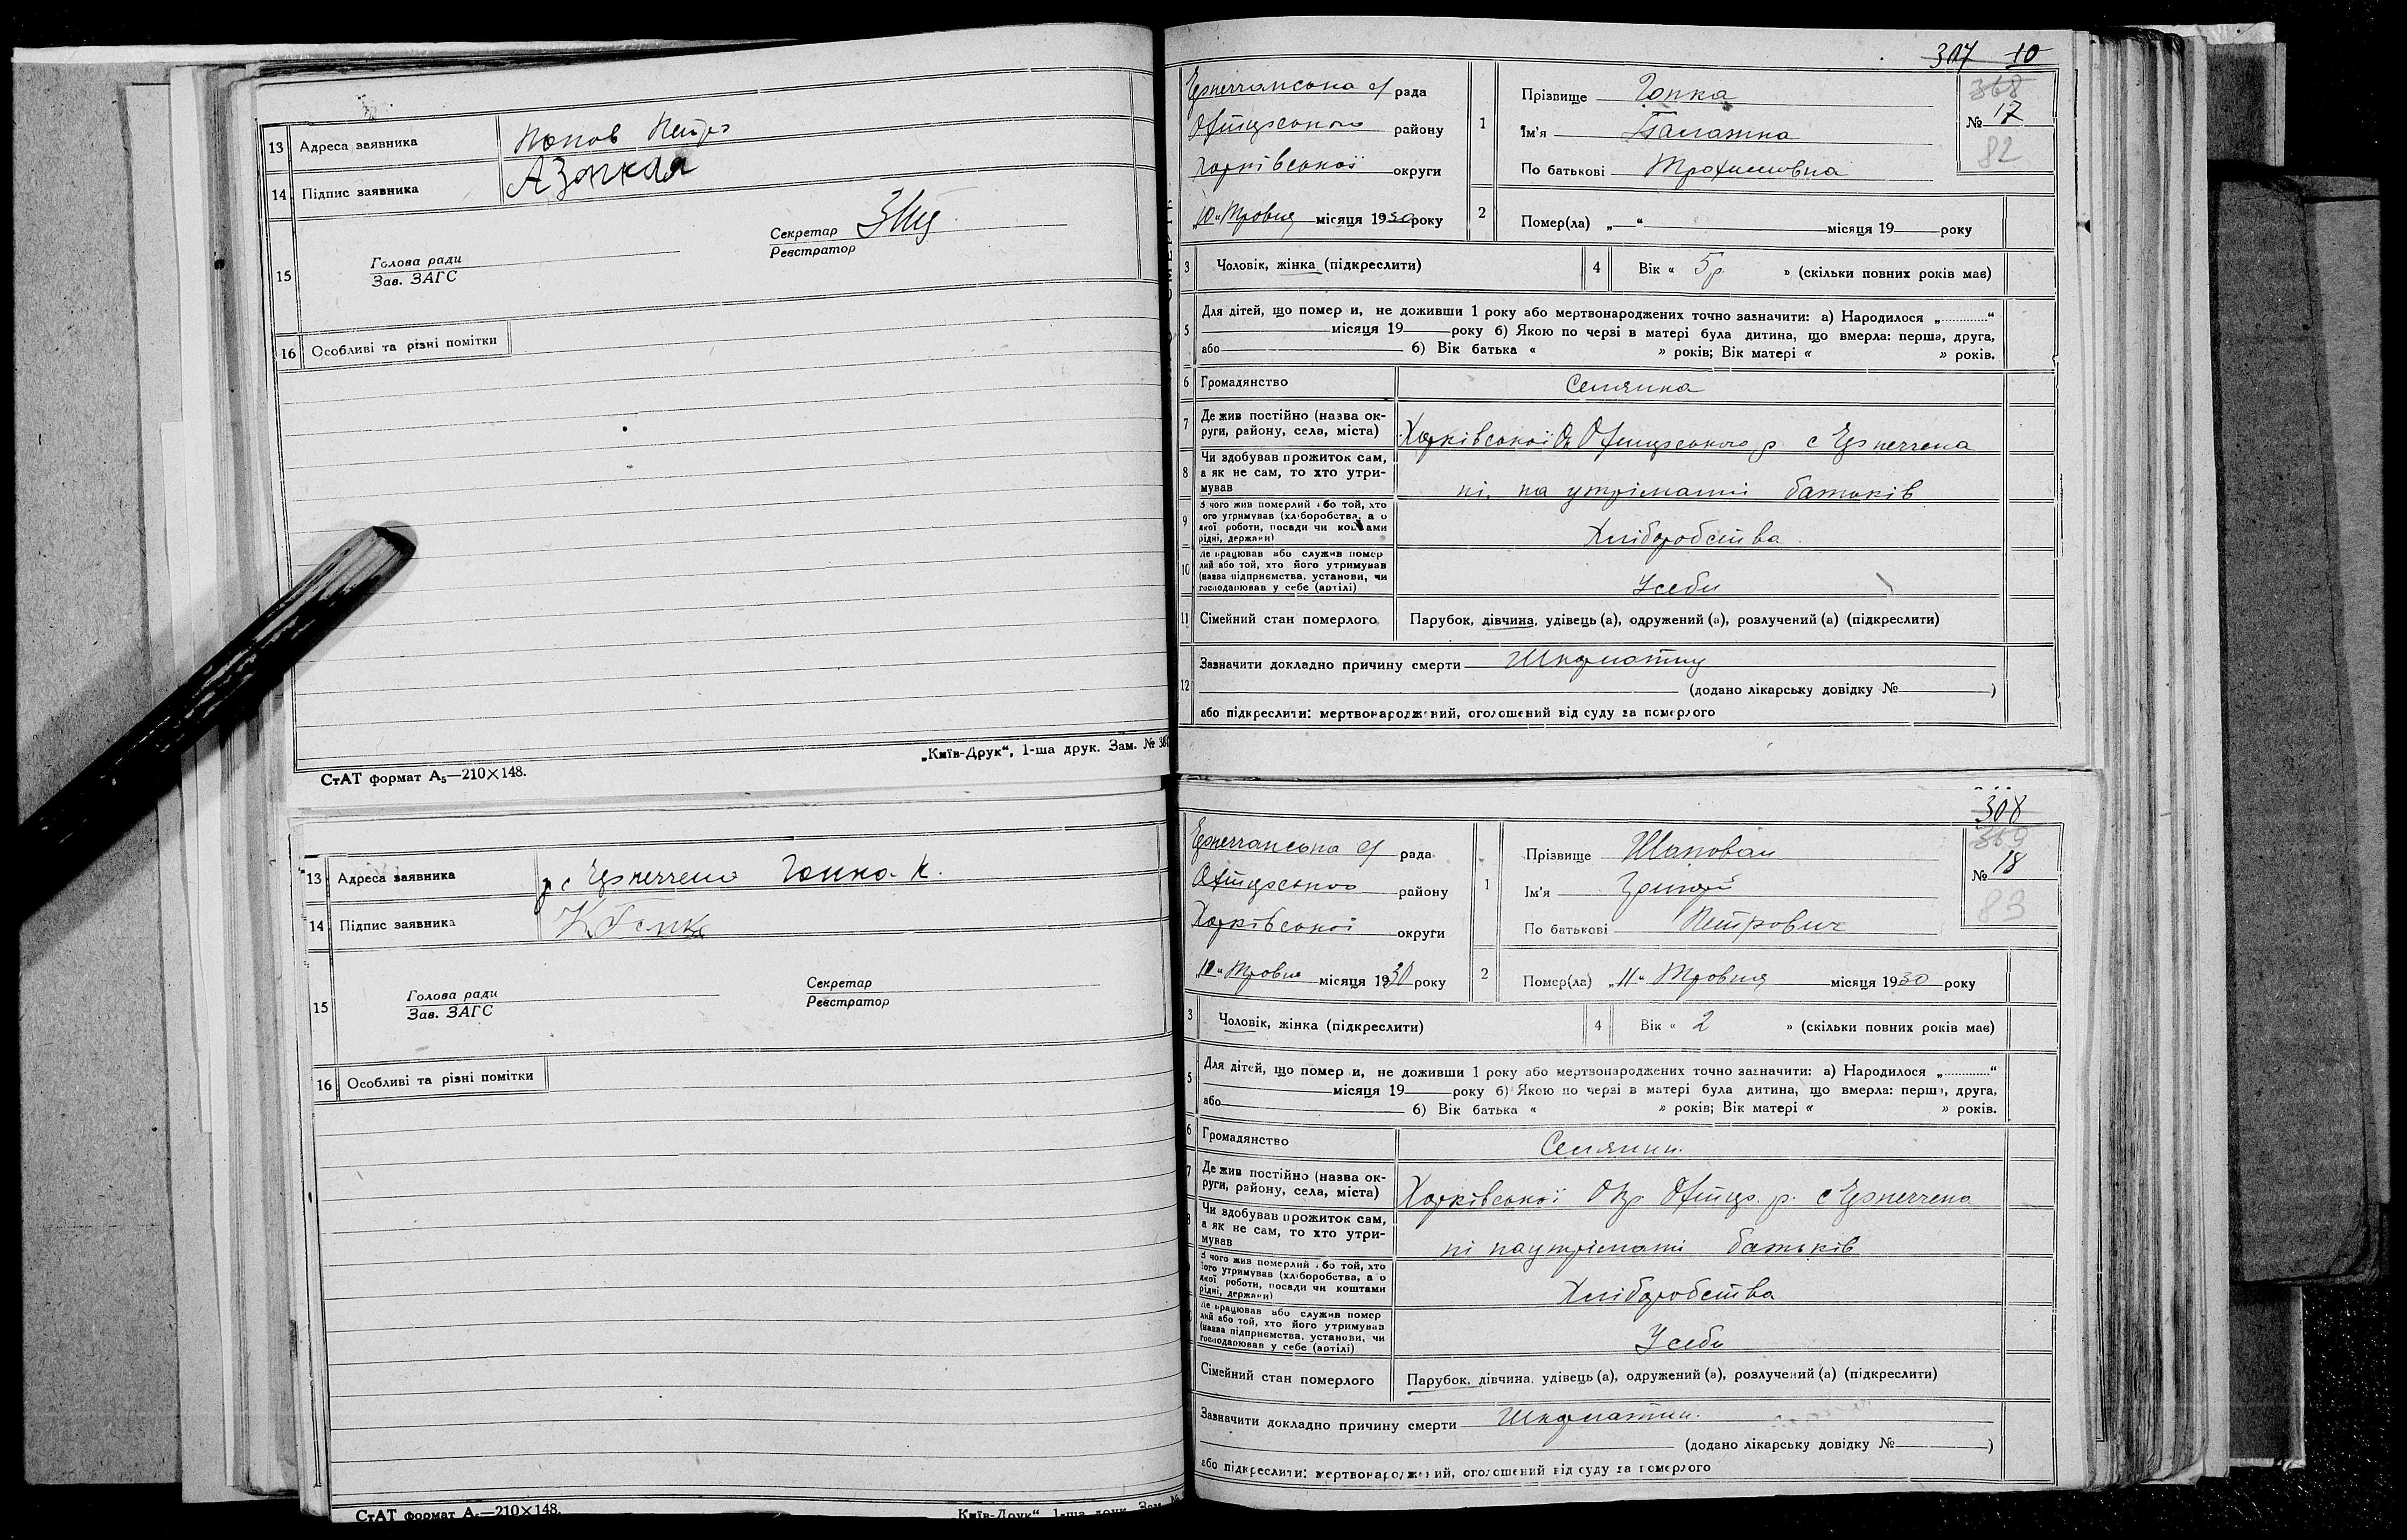 13 Адреса заявника Попов Петро
14 Підпис заявника
15 Голова ради
Зав. ЗАГС
Секретар
Реєстратор
16 Особливі та різні помітки
„Київ-Друк“, 1-ша друк. Зам. №
СтАТ формат А₅—210×148.
13 Адреса заявника с Гапка К.
14 Підпис заявника К Гапка
15 Голова ради
Зав. ЗАГС
Секретар
Реєстратор
16 Особливі та різні помітки
СтАТ формат А₅—210×148.
„Київ-Друк“, 1-ша друк. Зам. №
307 10
рада
району
Харківської округи
„10“ Травня місяця 1930 року
1 Прізвище Гапка
Ім'я
По батькові Трохимовна
368
№ 17
82
2 Помер(ла) „—“ місяця 19 року
3 Чоловік, жінка (підкреслити)
4 Вік « 5р » (скільки повних років має)
5 Для дітей, що помер и, не доживши 1 року або мертвонароджених точно зазначити: а) Народилося „............“
місяця 19 року б) Якою по черзі в матері була дитина, що вмерла: перша, друга,
або б) Вік батька « » років; Вік матері « » років.
6 Громадянство Селянка
7 Де жив постійно (назва ок-
руги, району, села, міста) Харківської р с
8 Чи здобував прожиток сам,
а як не сам, то хто утри-
мував ні, на утріманні батьків
9 З чого жив померлий або той, хто
його утримував (хліборобства, а о
якої роботи, посади чи коштами
рідні, держави) Хліборобства
10 Де працював або служив помер
лий або той, хто його утримував
(назва підприємства, установи, чи
господарював у себе (артілі) У себи
11 Сімейний стан померлого Парубок, дівчина, удівець (а), одружений (а), розлучений (а) (підкреслити)
12 Зазначити докладно причину смерти Шкарлатину
(додано лікарську довідку № )
або підкреслити: мертвонароджений, оголошений від суду за померлого
308
рада
району
Харківської округи
Травня місяця 1930 року
1 Прізвище Шаповал
Ім'я Григорй
По батькові Петрович
369
№ 18
83
2 Помер(ла) „11“ Травня місяця 1930 року
3 Чоловік, жінка (підкреслити)
4 Вік « 2 » (скільки повних років має)
5 Для дітей, що помер и, не доживши 1 року або мертвонароджених точно зазначити: а) Народилося „............“
місяця 19 року б) Якою по черзі в матері була дитина, що вмерла: перша, друга,
або б) Вік батька « » років; Вік матері « » років.
6 Громадянство Селянин.
7 Де жив постійно (назва ок-
руги, району, села, міста) Харківської Окр р. с
8 Чи здобував прожиток сам,
а як не сам, то хто утри-
мував ні на утріманні батьків
З чого жив померлий або той, хто
його утримував (хліборобства, а о
якої роботи, посади чи коштами
рідні, держави) Хліборобства
Де працював або служив помер
лий або той, хто його утримував
(назва підприємства, установи, чи
господарював у себе (артілі) У себи
Сімейний стан померлого Парубок, дівчина, удівець (а), одружений (а), розлучений (а) (підкреслити)
Зазначити докладно причину смерти Шкарлатин.
(додано лікарську довідку № )
або підкреслити: мертвонароджений, оголошений від суду за померлого